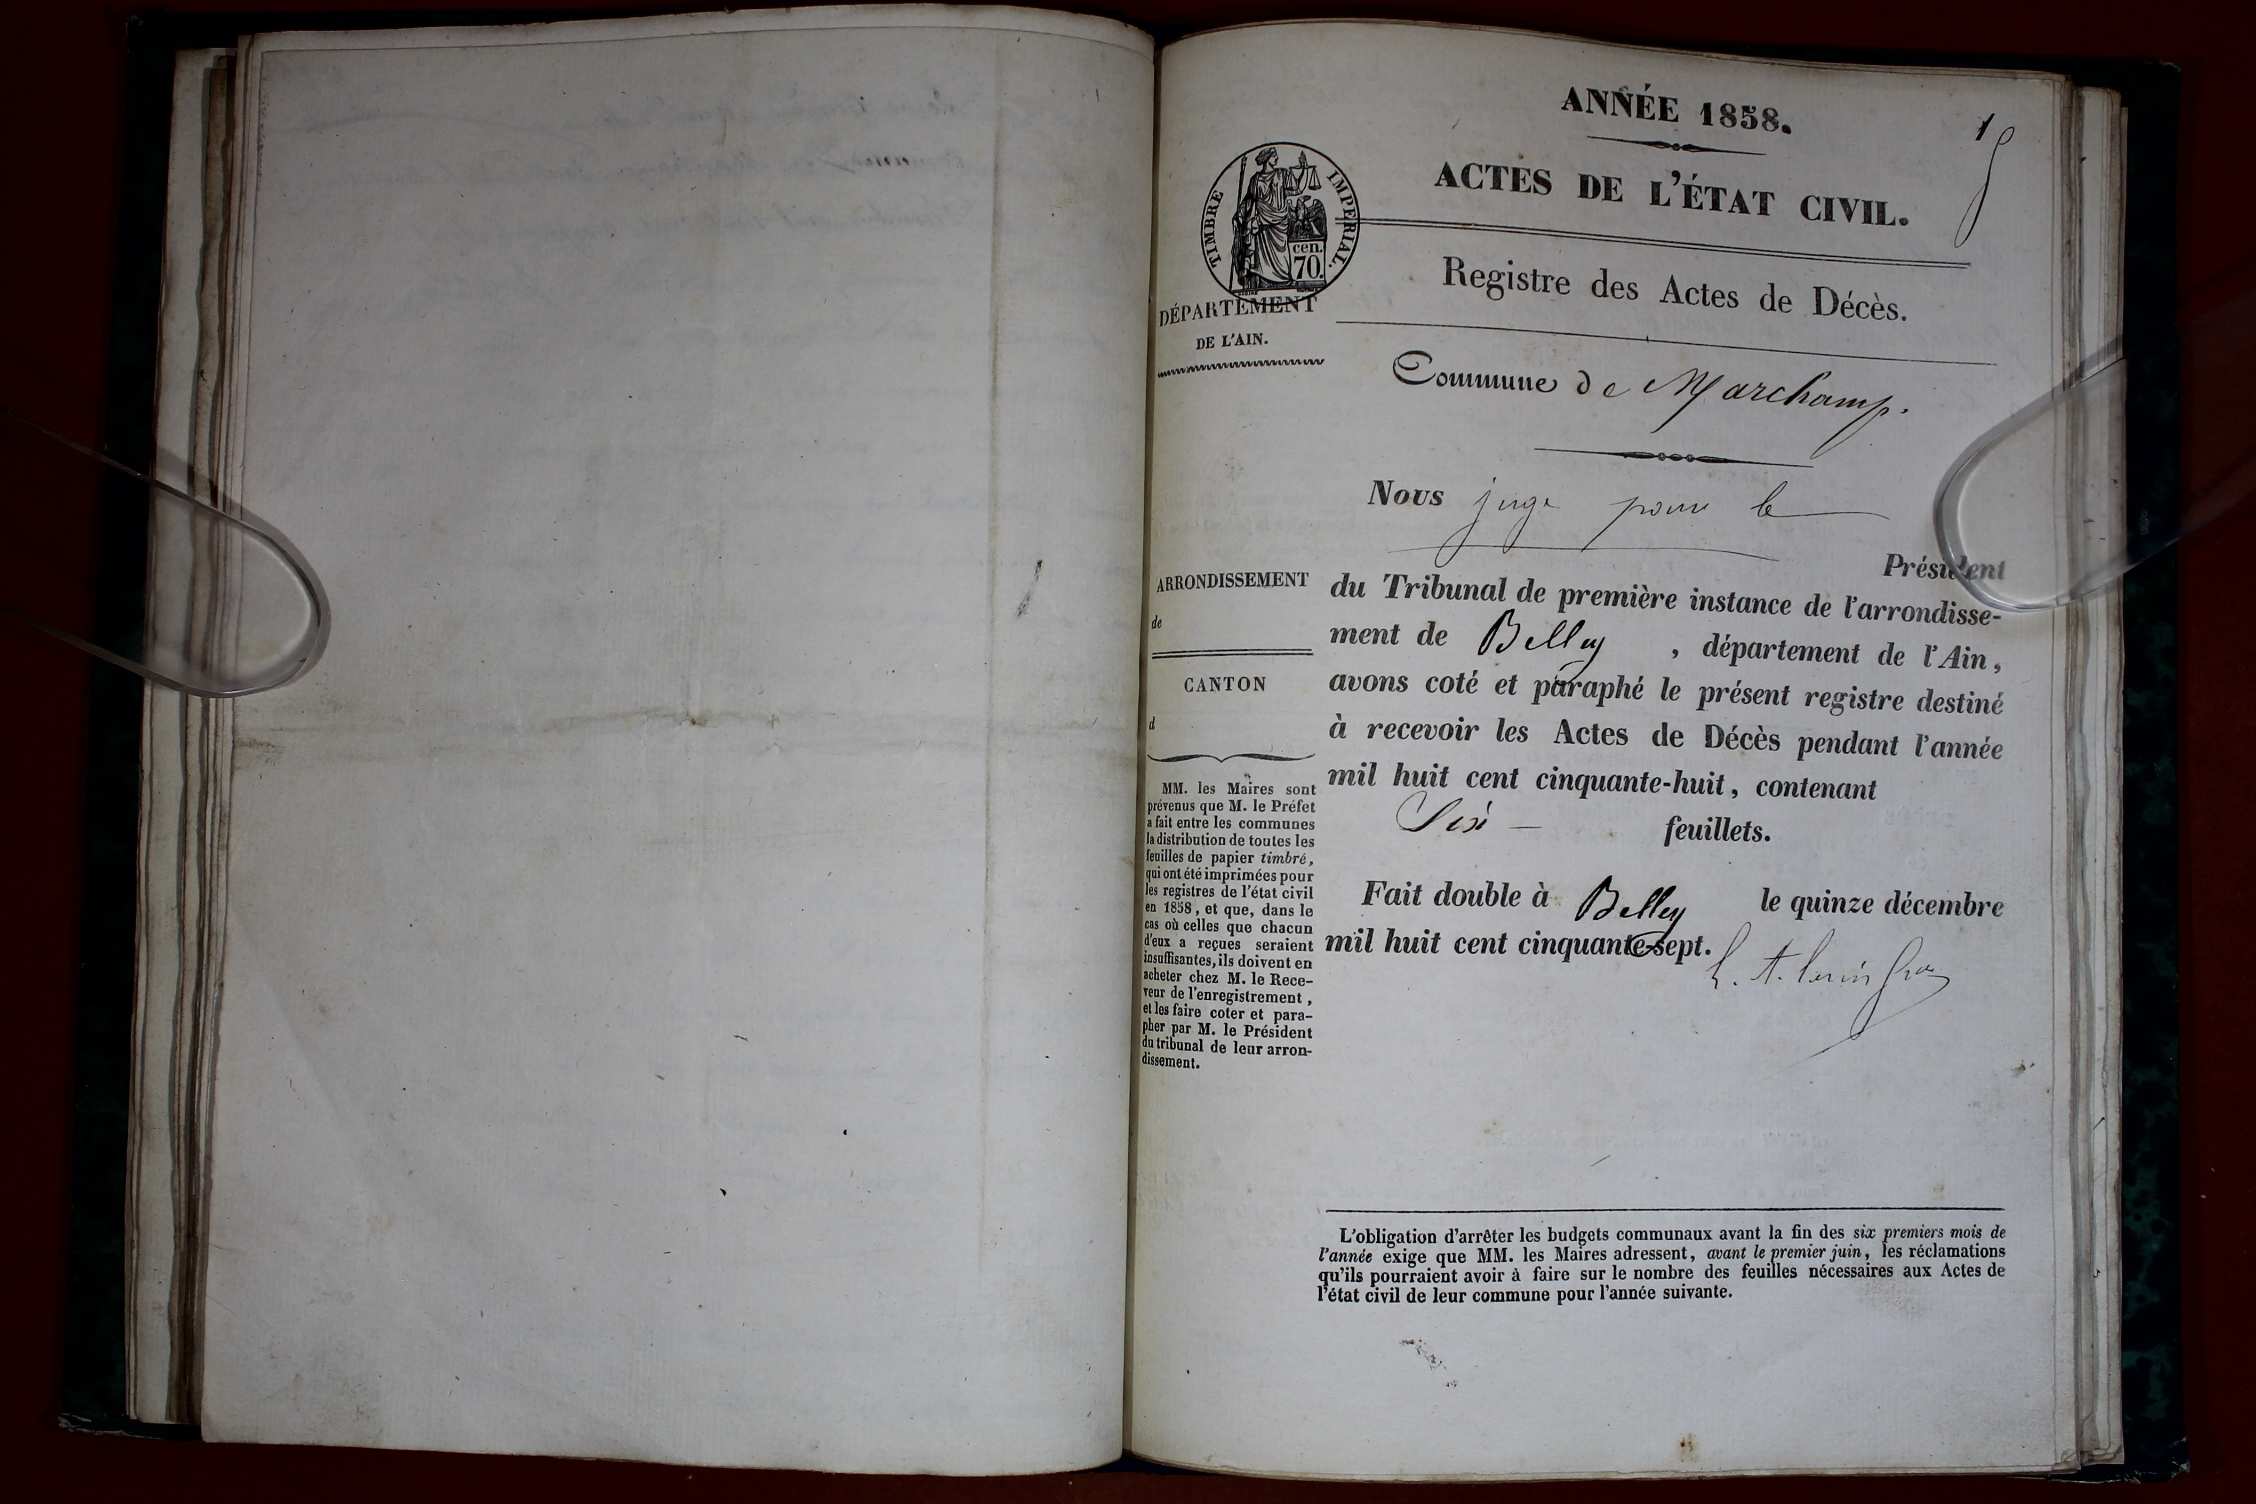 ANNÉE 1858.
1
ACTES DE L'ÉTAT CIVIL.
TIMBRE IMPERIAL.
cen.
70.
Registre des Actes de Décès.
DÉPARTEMENT
DE L'AIN.
Commune de Marchamp.
Nous juge pour le
Président
du Tribunal de première instance de l'arrondisse-
ment de Belley , département de l'Ain,
avons coté et paraphé le présent registre destiné
à recevoir les Actes de Décès pendant l'année
mil huit cent cinquante-huit, contenant
Six feuillets.
Fait double à Belley le quinze décembre
mil huit cent cinquante-sept.
ARRONDISSEMENT
de
CANTON
d
MM. les Maires sont
prévenus que M. le Préfet
a fait entre les communes
la distribution de toutes les
feuilles de papier timbré,
qui ont été imprimées pour
les registres de l'état civil
en 1858, et que, dans le
cas où celles que chacun
d'eux a reçues seraient
insuffisantes, ils doivent en
acheter chez M. le Rece-
veur de l'enregistrement,
et les faire coter et para-
pher par M. le Président
du tribunal de leur arron-
dissement.
L'obligation d'arrêter les budgets communaux avant la fin des six premiers mois de
l'année exige que MM. les Maires adressent, avant le premier juin, les réclamations
qu'ils pourraient avoir à faire sur le nombre des feuilles nécessaires aux Actes de
l'état civil de leur commune pour l'année suivante.